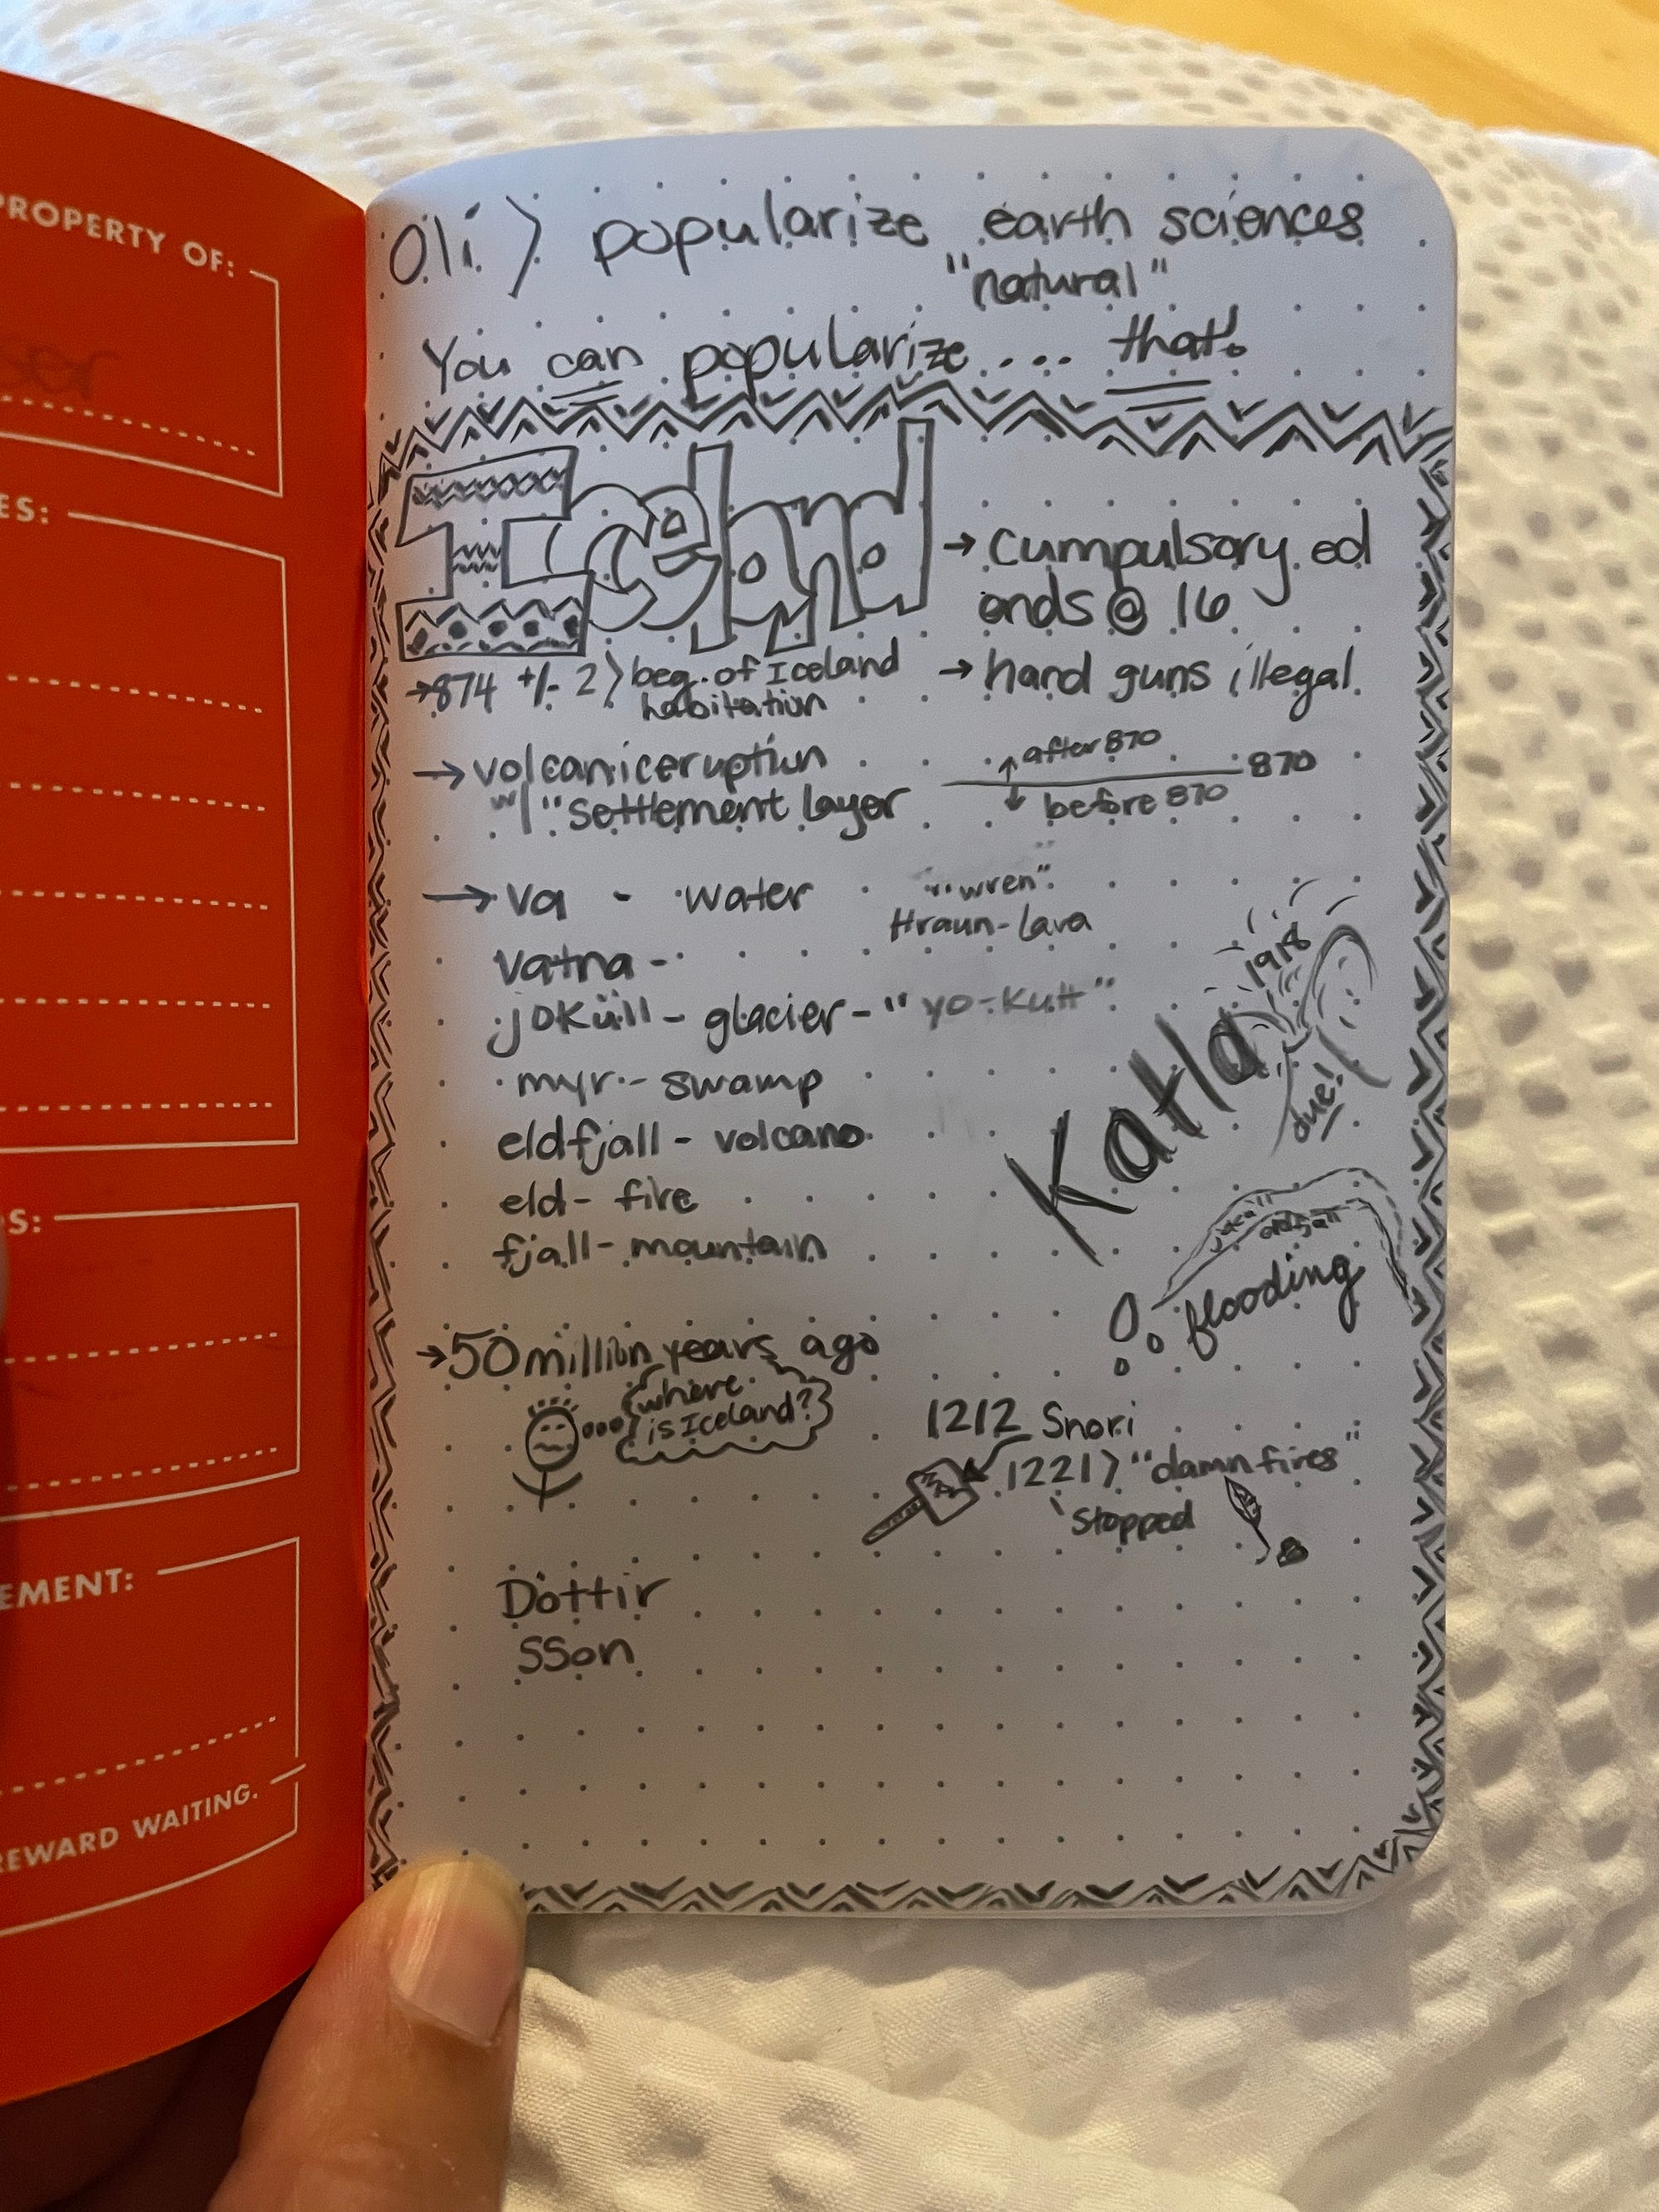 PROPERTY OF:
ES:
S:
EMENT:
REWARD WAITING.
Oli > popularize earth sciences
"natural"
You can popularize... that!
Iceland
→ cumpulsory ed
ends @ 16
→ hand guns illegal
→ 874 +/- 2 > beg. of Iceland
habitation
→ volcanic eruption
w/ "settlement layer
↑ after 870
870
↓ before 870
→ va - water
"wren"
Hraun - Lava
vatna -
joküll - glacier - "yo-kutt"
myr - swamp
eldfjall - volcano
eld - fire
fjall - mountain
Katla
1918
due!
eldfjall
flooding
→ 50 million years ago
where
is Iceland?
1212 Snori
1221 > "damn fires"
stopped
Dottir
SSon